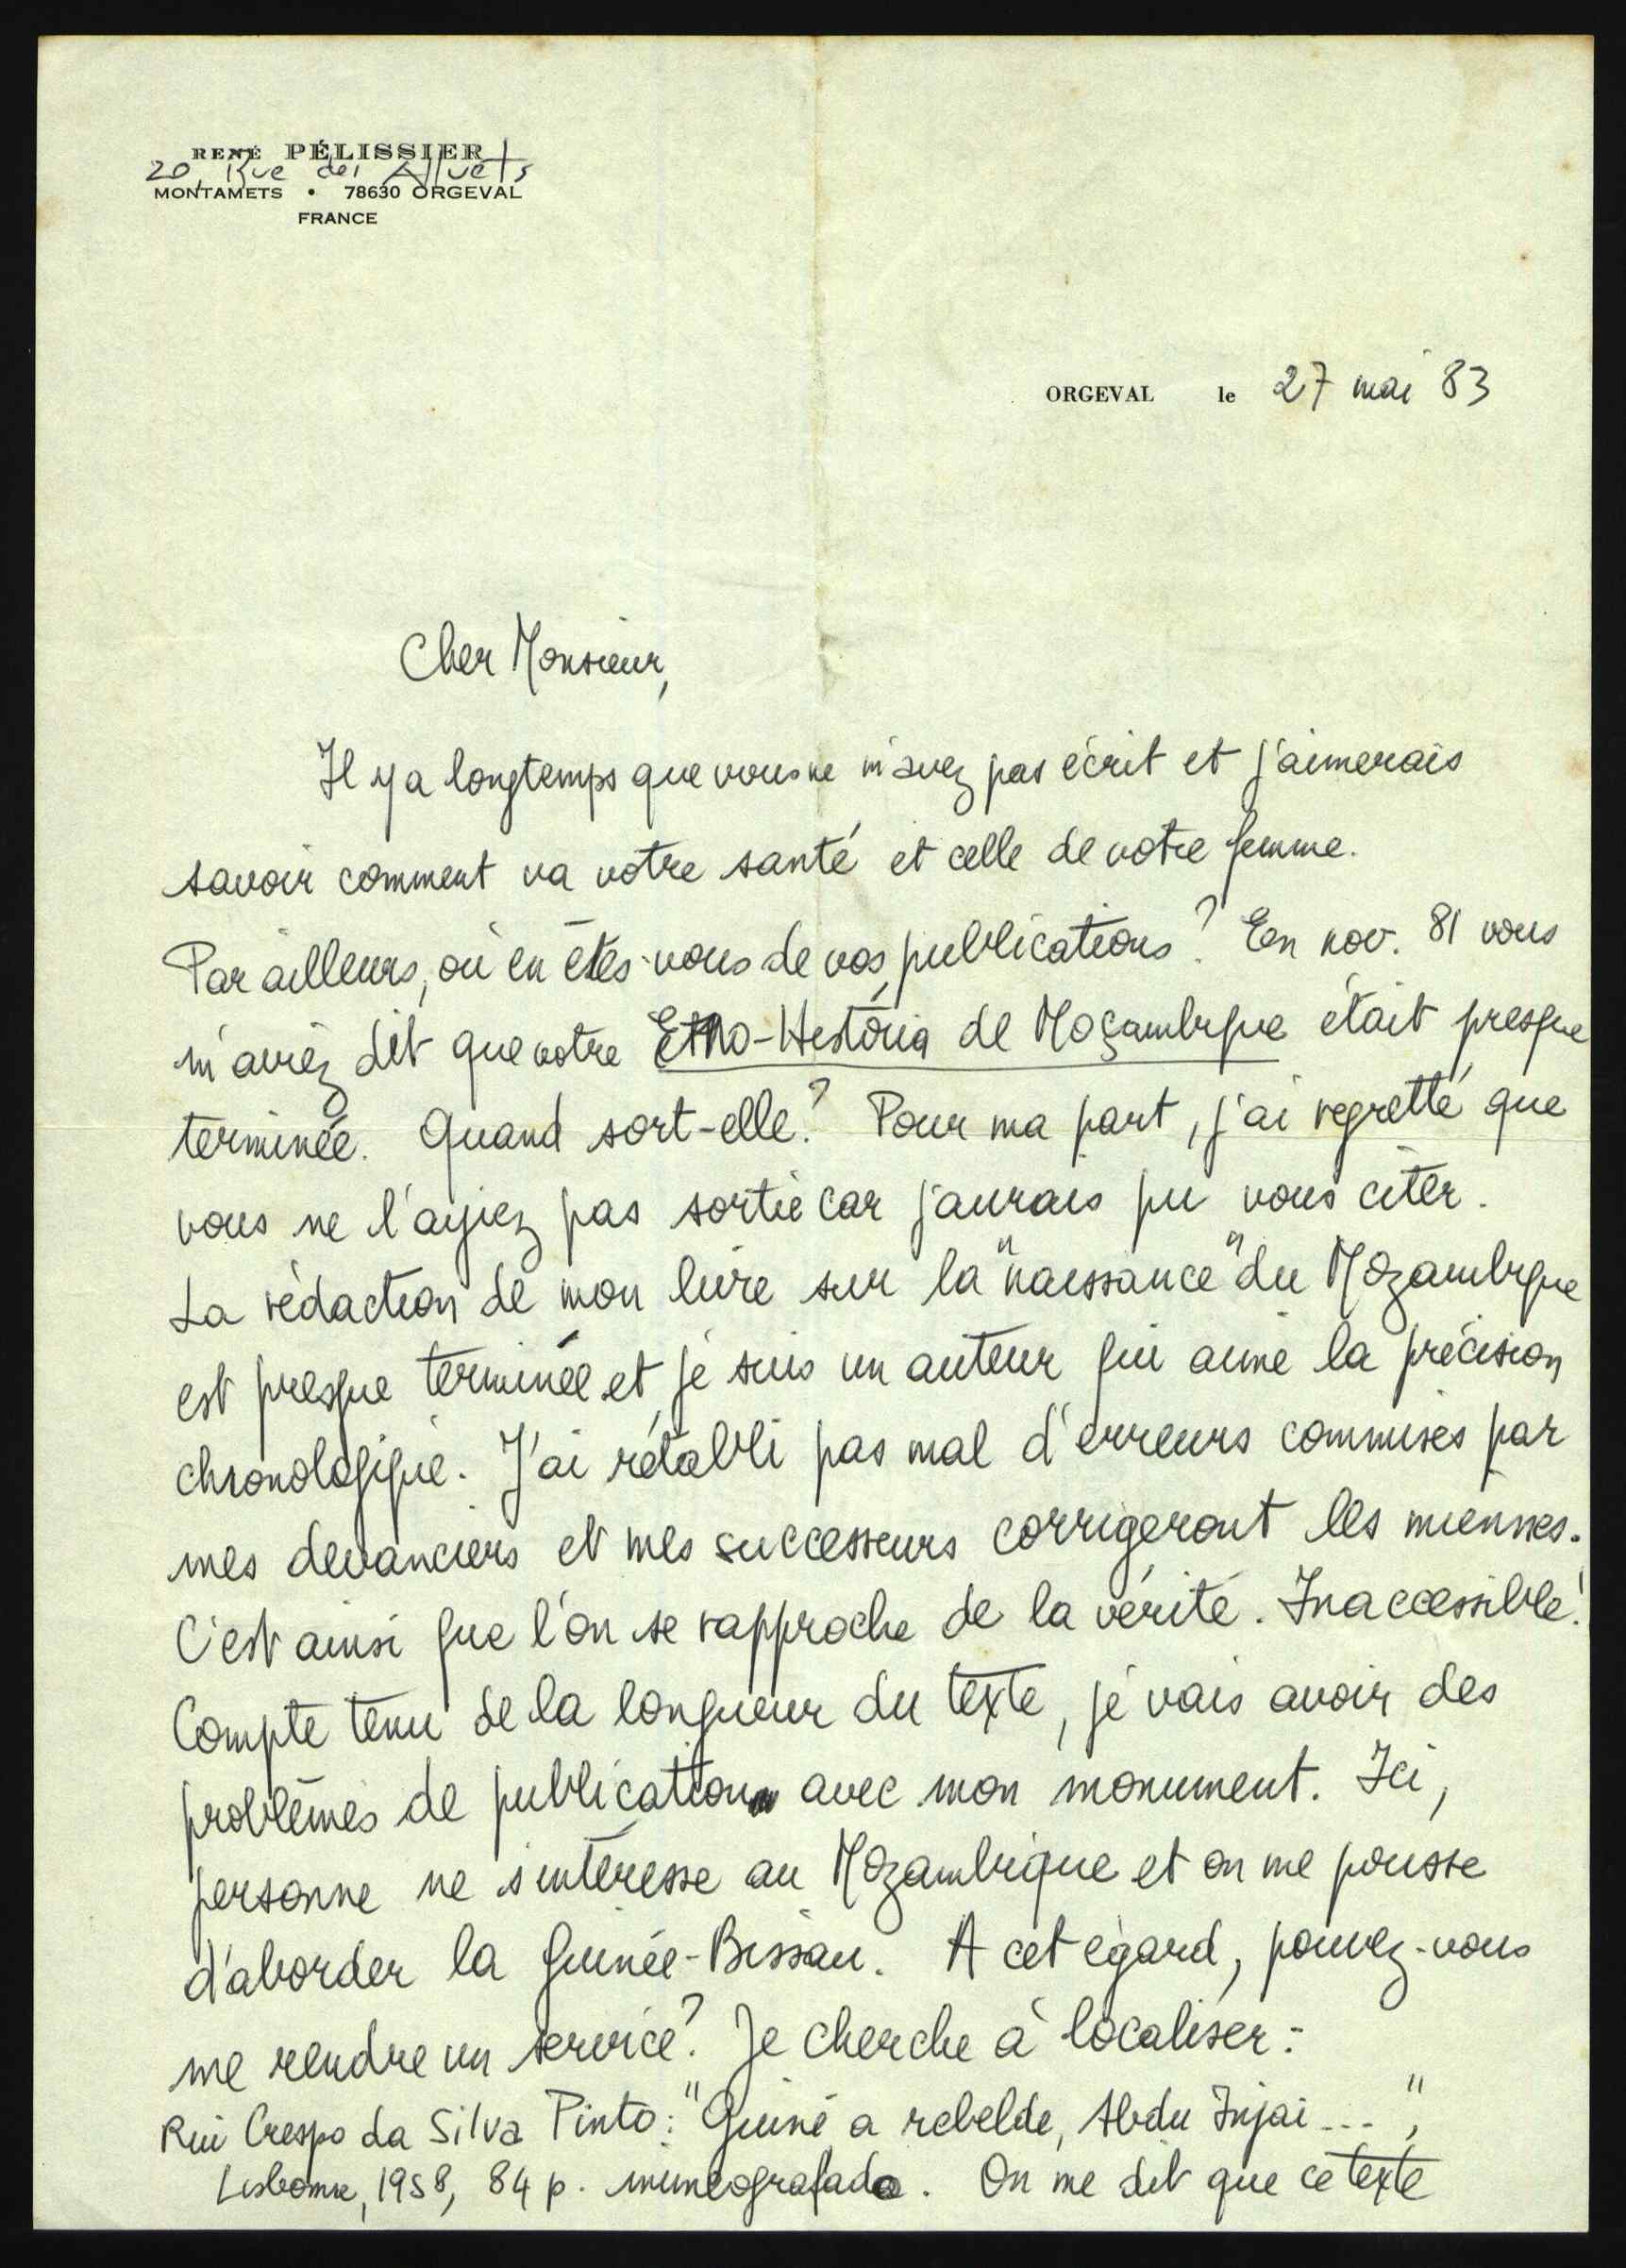 RENÉ PÉLISSIER
20, Rue des Alluets
MONTAMETS • 78630 ORGEVAL
FRANCE
ORGEVAL le 27 mai 83
Cher Monsieur,
Il y a longtemps que vous ne m'avez pas écrit et j'aimerais
savoir comment va votre santé et celle de votre femme.
Par ailleurs, où en êtes-vous de vos publications? En nov. 81 vous
m'aviez dit que votre Etno-História de Moçambique était presque
terminée. Quand sort-elle? Pour ma part, j'ai regretté que
vous ne l'ayiez pas sortie car j'aurais pu vous citer.
La rédaction de mon livre sur la "naissance" du Mozambique
est presque terminée et je suis un auteur qui aime la précision
chronologique. J'ai rétabli pas mal d'erreurs commises par
mes devanciers et mes successeurs corrigeront les miennes.
C'est ainsi que l'on se rapproche de la vérité. Inaccessible!
Compte tenu de la longueur du texte, je vais avoir des
problèmes de publication avec mon monument. Ici,
personne ne s'intéresse au Mozambique et on me pousse
d'aborder la Guinée-Bissau. A cet égard, pouvez-vous
me rendre un service? Je cherche à localiser:
Rui Crespo da Silva Pinto: "Guiné a rebelde, Abdu Injai...",
Lisbonne, 1958, 84 p. mimeografado. On me dit que ce texte